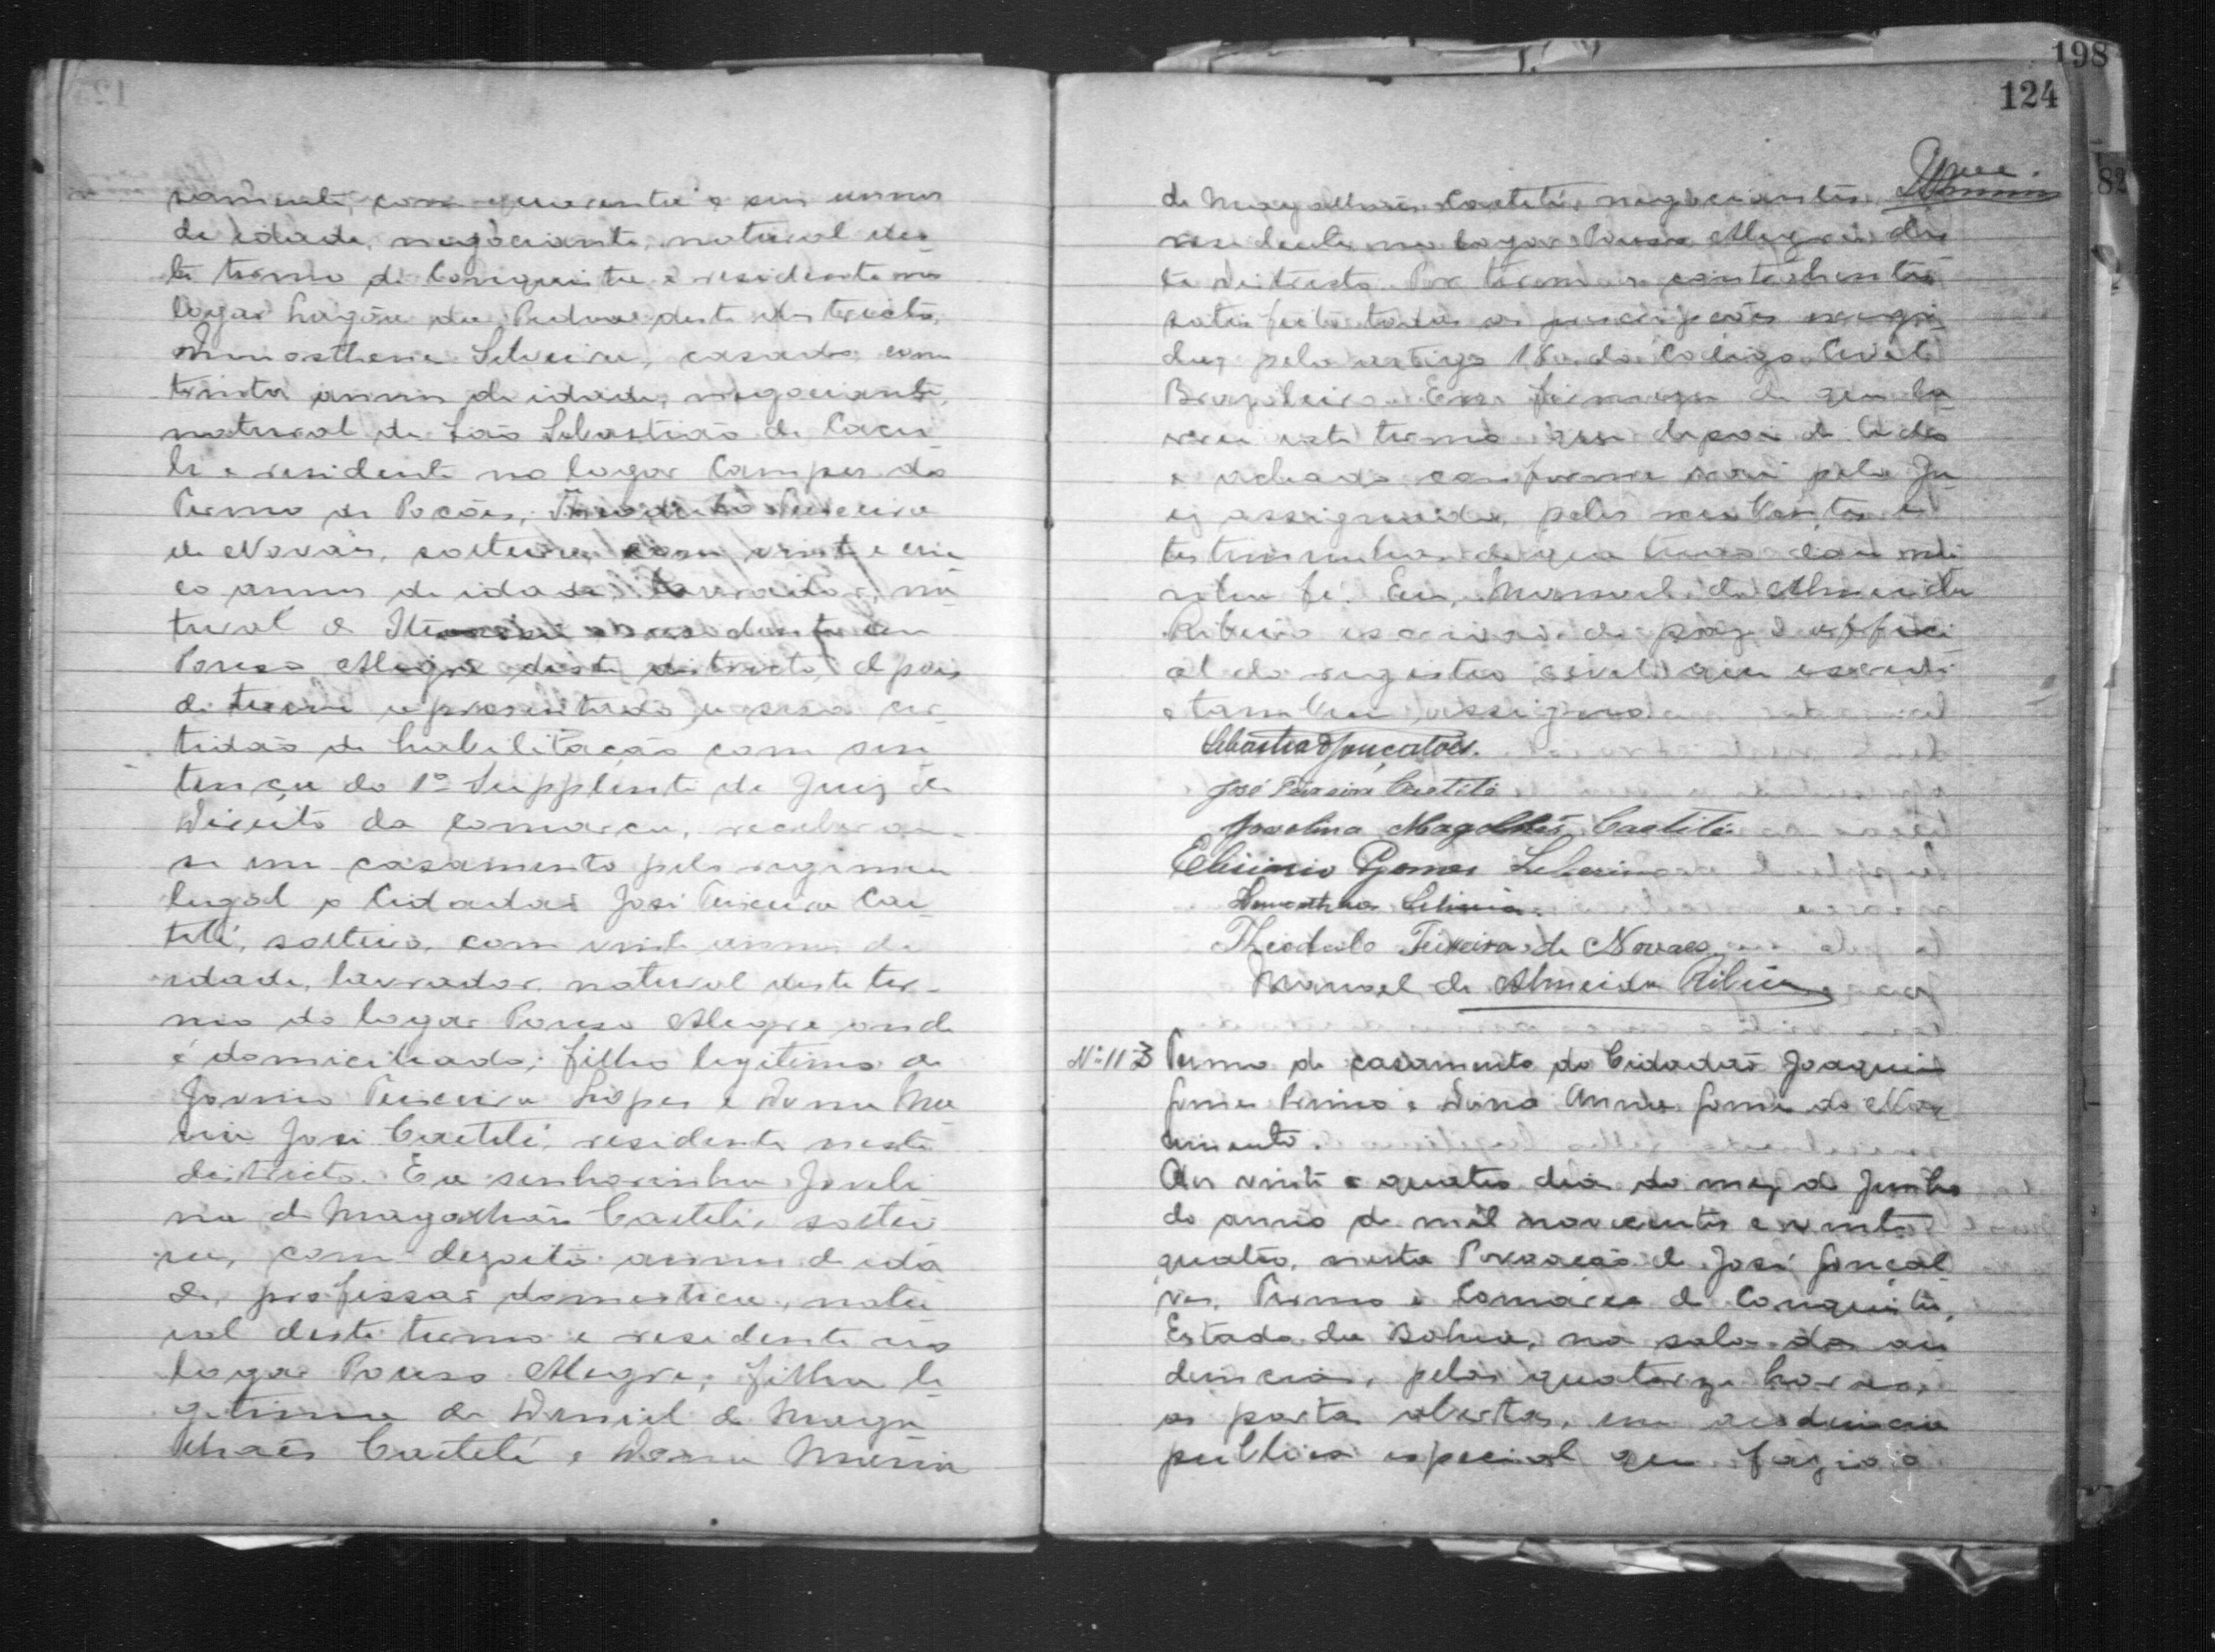 samente com quarenta e seis annos
de idade, negociante, natural des
te termo de Conquista e residente no
logar Lagôa da Pedra deste districto,
Demosthene Silveira, casado com
trinta annos de idade, negociante,
natural de São Sebastião de Cacu
lé e residente no logar Campos do
Termo de Poções, Theodulo Teixeira
de Novais, solteiro, com vinte e cin
co annos de idade, lavrador, na
tural de residente em
Pouso Alegre deste districto, depois
de terem apresentado a essa cer
tidão de habilitação com sen
tença do 1º Supplente de Juiz de
Direito da Comarca, receberam-
se em casamento pelo regimen
legal o Cidadão José Teixeira Cae
tité, solteiro, com vinte annos de
idade, lavrador, natural deste ter-
mo do logar Pouso Alegre onde
é domiciliado; filho legitimo de
Teixeira Lopes e Dona Ma
ria José Caetité, residente neste
districto. E a senhorinha Joveli
na de Magalhães Caetité, soltei
ra, com dezoito annos de ida
de, profissão domestica, natu
ral deste termo e residente no
logar Pouso Alegre; filha le
gitima de Daniel de Maga
lhães Caetité e Dona Maria
198
124
82
de Magalhães Caetité, negociantes
residente no logar Pouso Alegre des
te districto. Por terem os contrahentes
satisfeito todas as prescripções exegi
das pelo artigo 180 do Codigo Civil
Brazileiro. Em firmeza de que la
vrei este termo que depois de lido
e achado conforme vai pelo Ju
iz assignado, pelos contrahentes e
testimunhas de que tudo dou mi
nha fé. Eu, Manoel de Almeida
Ribeiro escrivão de paz e offici
al do registro civel que escrevi
e tambem assigno
Sebastião Gonçalves.
José Teixeira Caetité
Jovelina Magalhães Caetité
Elisinio Gomes
Demosthenes Silveira.
Theodulo Teixeira de Novaes
Manoel de Almeida Ribeiro
Nº 113 Termo de casamento do Cidadão Joaquim
Gomes Primo e Dona Anna Gomes do Nas
cimento
Aos vinte e quatro dia do mez de Junho
do anno de mil novecentos e vinte
quatro, nesta Povoação de José Gonçal
ves, Termo e Comarca de Conquista,
Estado da Bahia, na sala das au
diencias, pelas quatorze horas,
as portas abertas, em audiencia
publica especial que fazia o